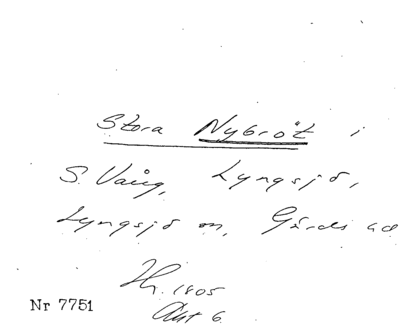 Stora Nybröt i
S. Vång, Lyngsjö,
Lyngsjö sn, Gärds hd
Hr. 1805
Akt 6.
Nr 7751